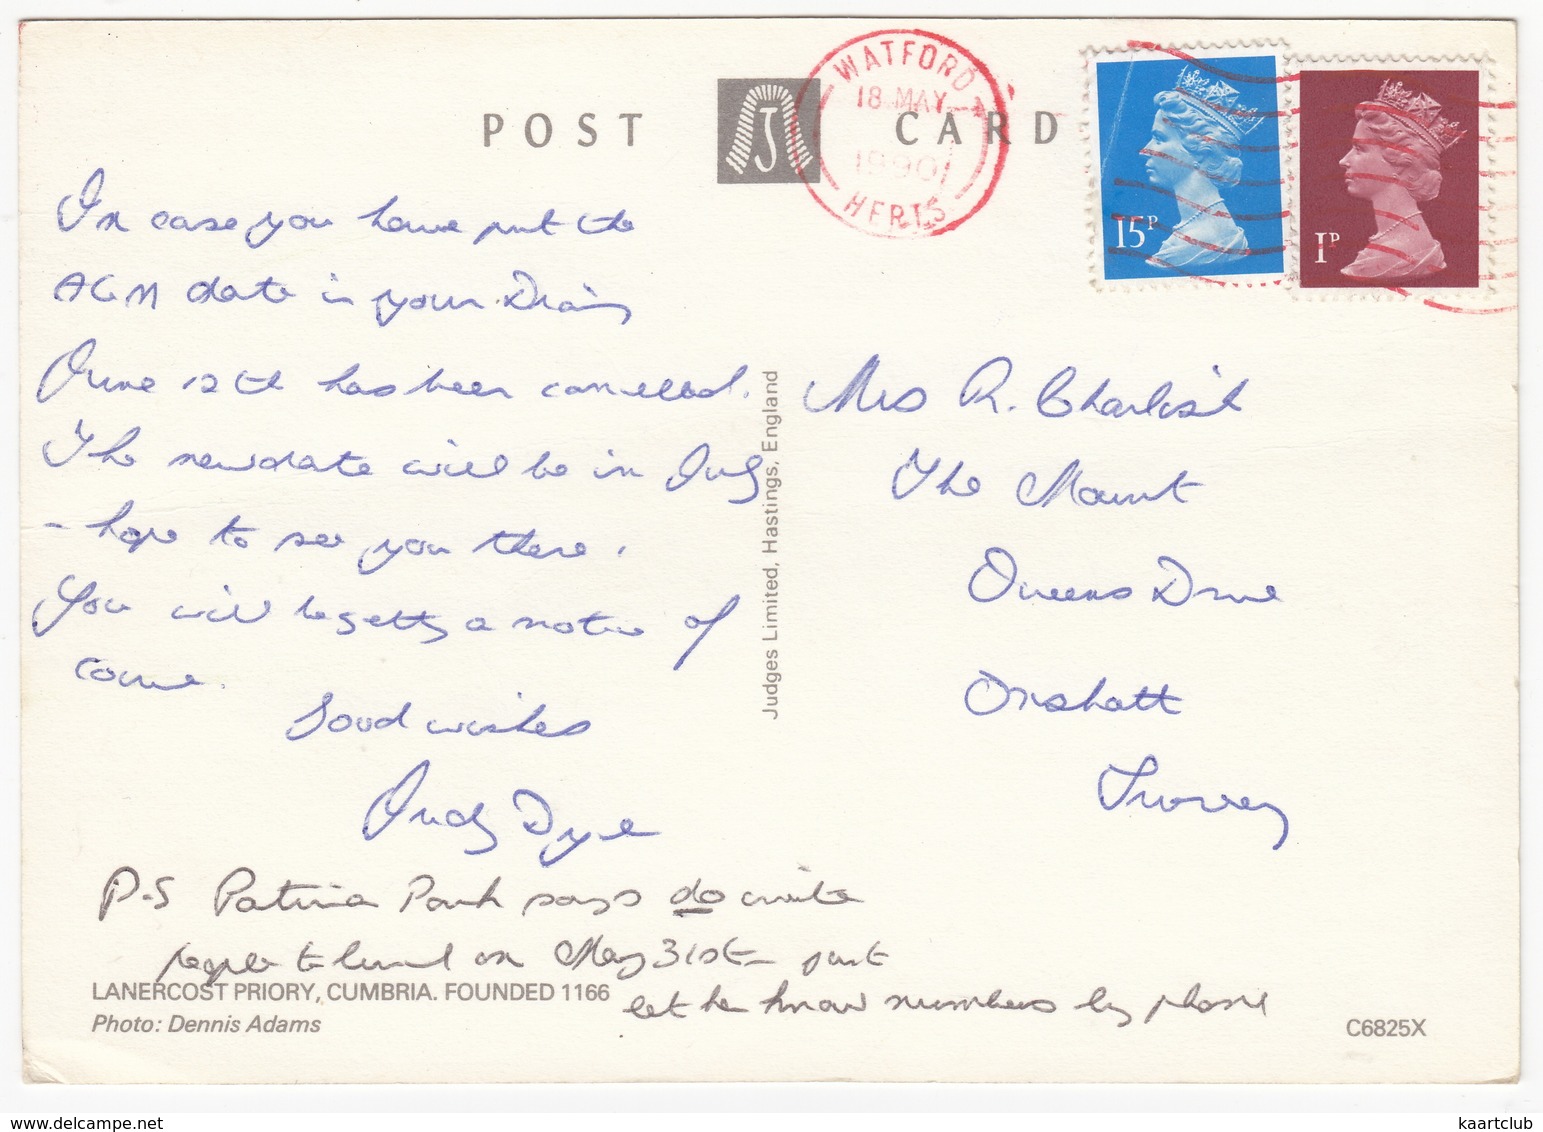 POST J CARD
WATFORD
18 MAY
1990
HERTS
15P
1P
In case you have put the
AGM date in your Diary
June 12th has been cancelled.
The new date will be in July
- hope to see you there.
You will be getting a notice of
course.
Good wishes
Judy Dyse
P.S Patricia Park says do invite
people to lunch on May 31st - just
let her know numbers by phone
LANERCOST PRIORY, CUMBRIA. FOUNDED 1166
Photo: Dennis Adams
Judges Limited, Hastings, England
Mrs R. Charlish
The Mount
Queens Drive
Oxshott
Surrey
C6825X
www.delcampe.net
kaartclub